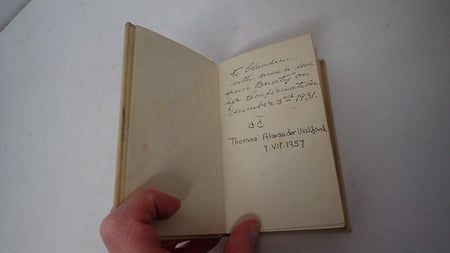 To Claudia
with much love
from
on
her Confirmation
December 3rd 1931.
Thomas Alexander Walford
7.VII.1957